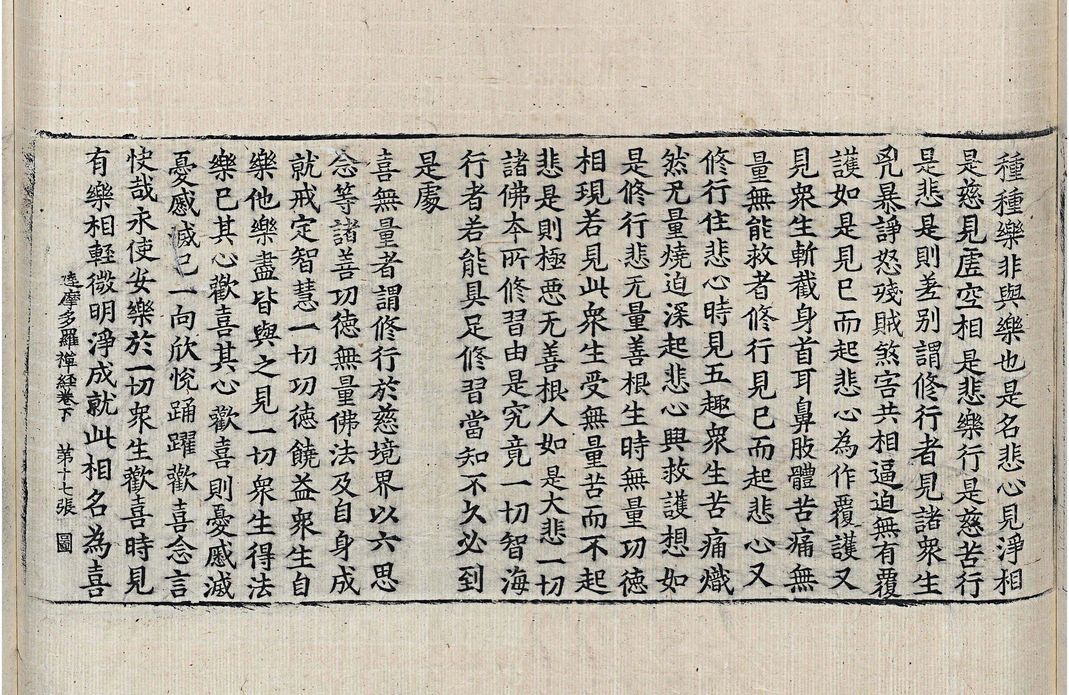 種種樂非與樂也是名悲心見淨相
是慈見虛空相是悲樂行是慈苦行
是悲是則差别謂修行者見諸衆生
兇暴諍怒殘賊煞害共相逼迫無有覆
護如是見已而起悲心為作覆護又
見衆生斬截身首耳鼻肢體苦痛無
量無能救者修行見已而起悲心又
修行住悲心時見五趣衆生苦痛熾
然无量燒迫深起悲心興救護想如
是修行悲无量善根生時無量功徳
相現若見此衆生受無量苦而不起
悲是則極惡无善根人如是大悲一切
諸佛夲所修習由是究竟一切智海
行者若能具足修習當知不久必到
是處
喜無量者謂修行於慈境界以六思
念等諸善功徳無量佛法及自身成
就戒定智慧一切功徳饒益衆生自
樂他樂盡皆與之見一切衆生得法
樂已其心歡喜其心歡喜則憂慼滅
憂慼滅已一向欣悅踊躍歡喜念言
快哉永使安樂於一切衆生歡喜時見
達摩多羅禪經卷下 第十七張 圖
有樂相輕微明淨成就此相名為喜